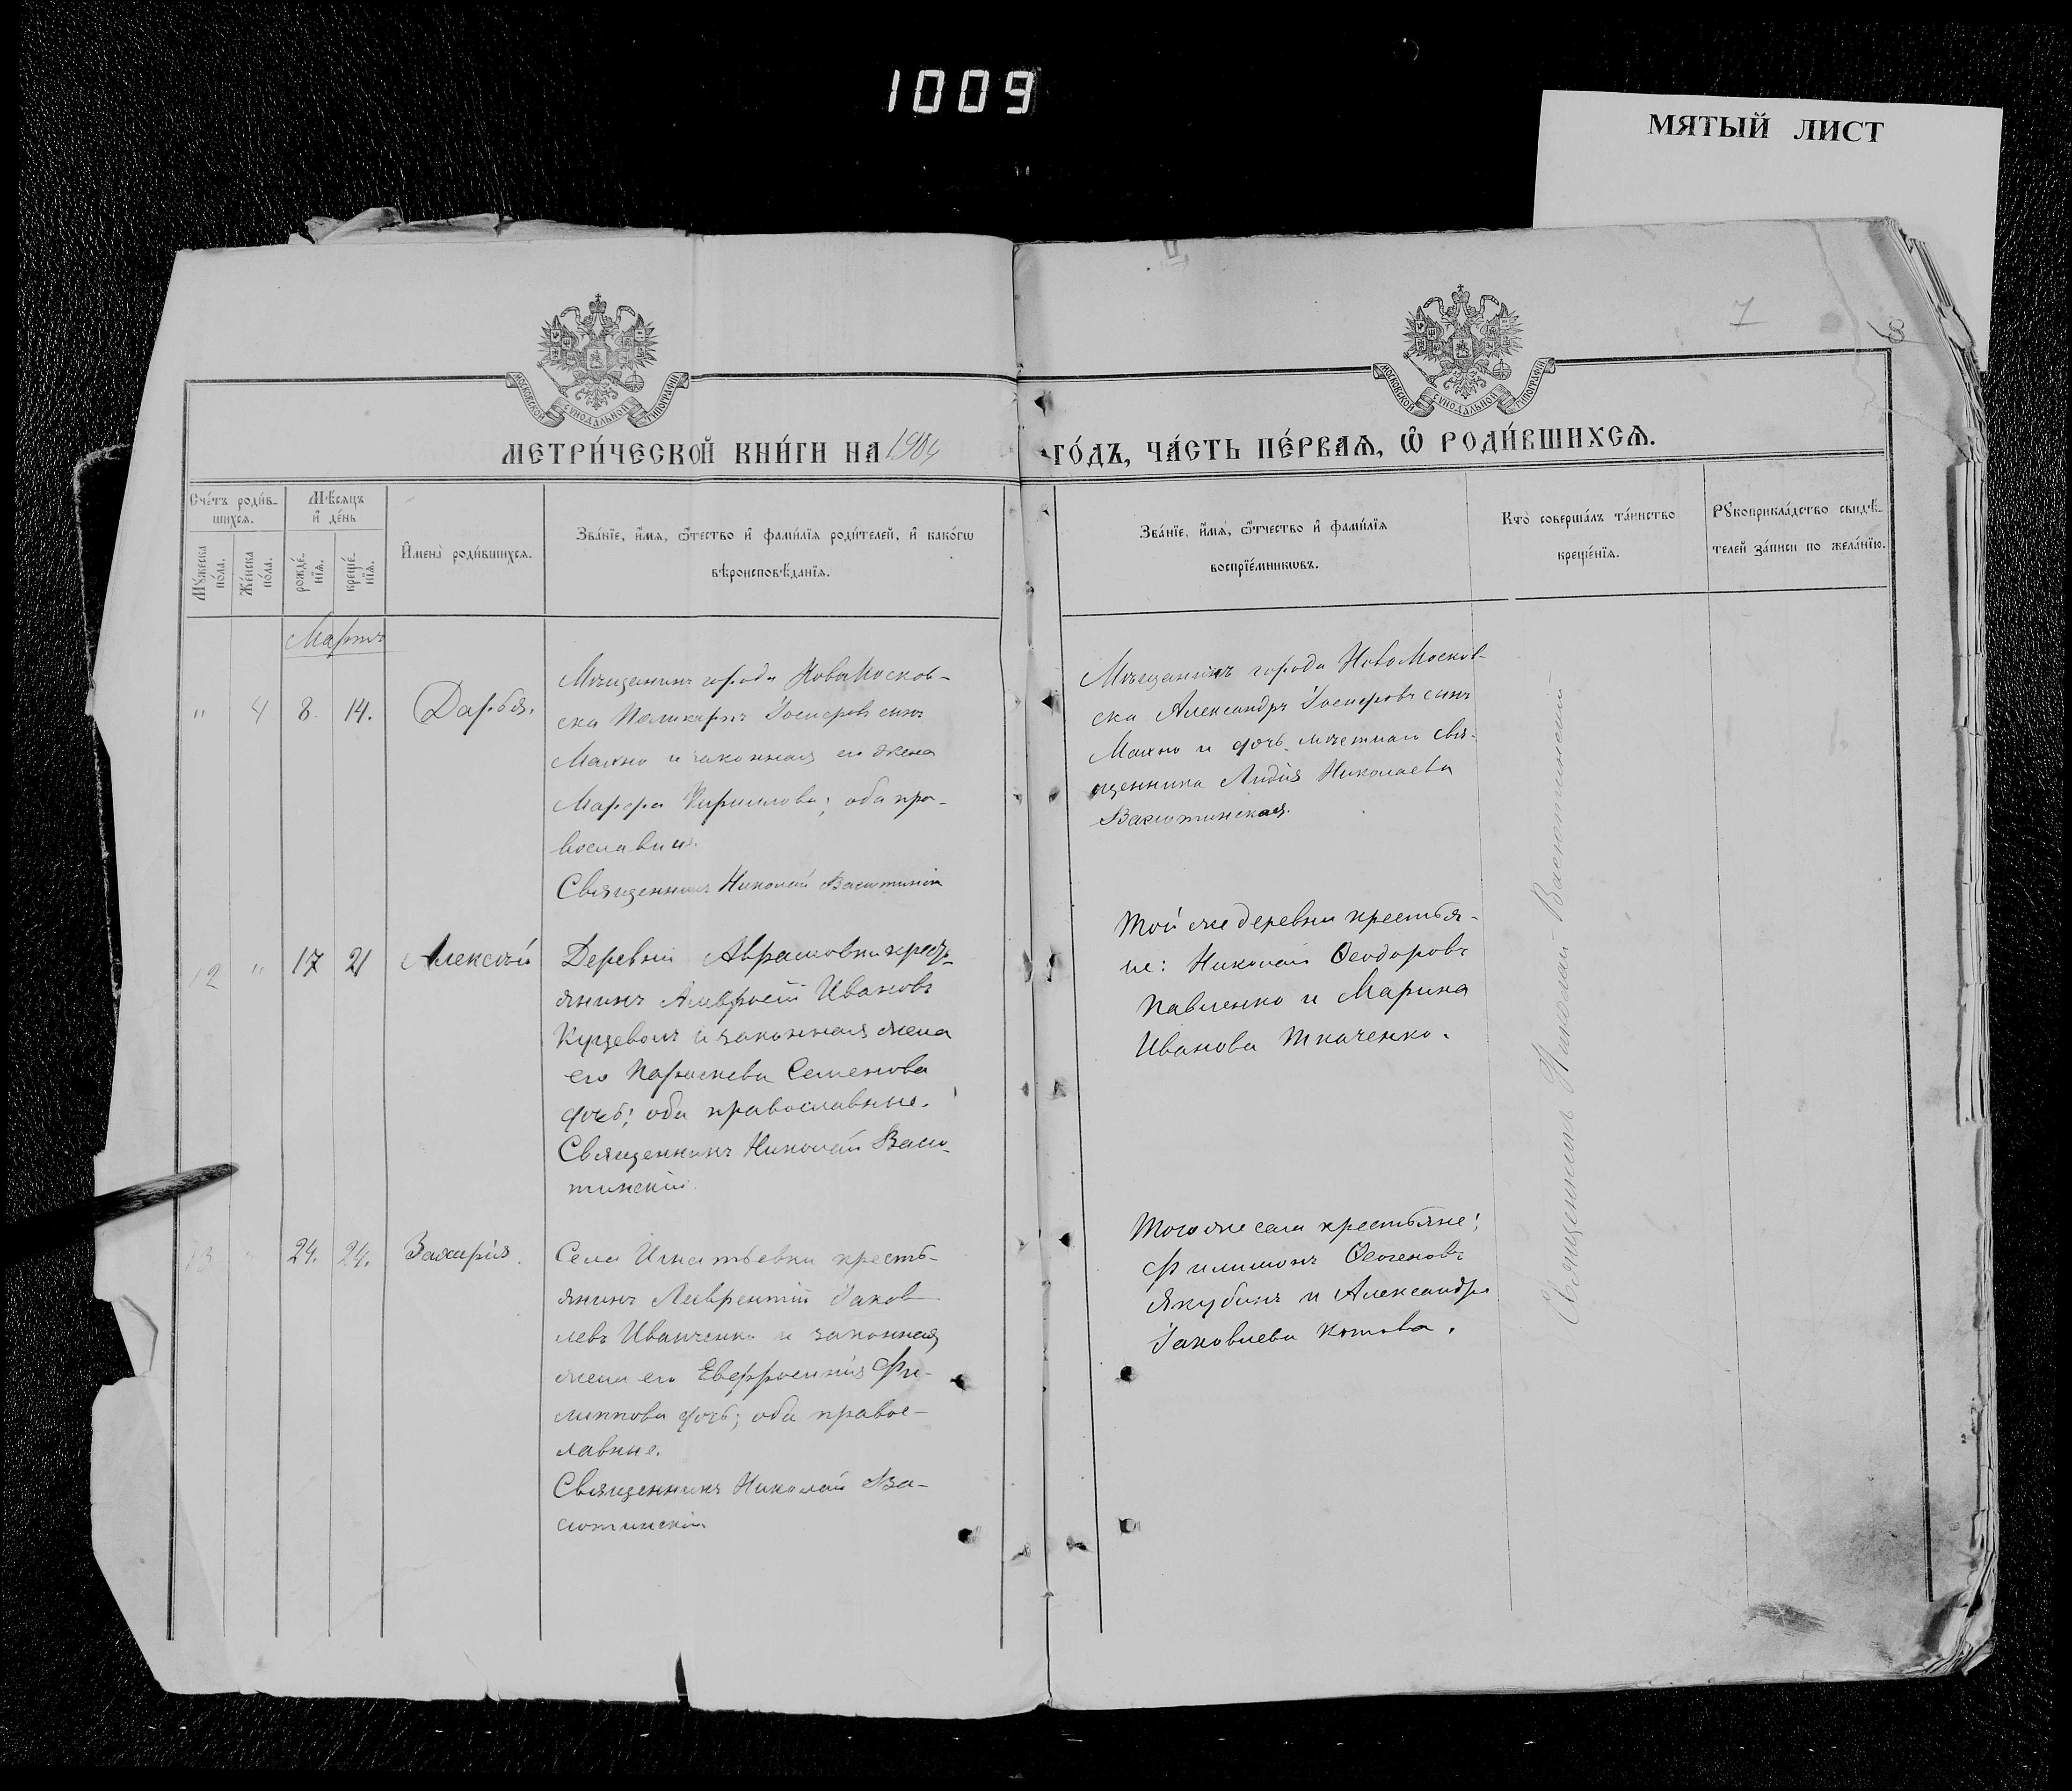 1009
МЯТЫЙ ЛИСТ
7
8
МОСКОВСКОЙ СѴНОДАЛЬНОЙ ТИПОГРАФІИ
МОСКОВСКОЙ СѴНОДАЛЬНОЙ ТИПОГРАФІИ
МЕТРИ́ЧЕСКОЙ КНИ́ГИ НА 1904 ГО́ДЪ, ЧА́СТЬ ПЕ́РВАѦ, Ѡ РОДИ́ВШИХСѦ.
Сче́тъ роди́в-
шихсѧ.
Мꙋ́жеска по́ла.
Же́нска по́ла.
Мѣ́сяцъ
и҆ де́нь
рожде́-
нїѧ.
креще́-
нїѧ.
И҆мена̀ роди́вшихсѧ.
Зва́нїе, и҆́мѧ, ѻ҆́тество и҆ фами́лїѧ роди́телей, и҆ како́гѡ
вѣроисповѣ́данїѧ.
Зва́нїе, и҆́мѧ, ѻ҆́тчество и҆ фами́лїѧ
воспрїе́мникѡвъ.
Кто̀ соверша́лъ та́инство
креще́нїѧ.
Рꙋкоприкла́дство свидѣ́-
телей за́писи по жела́нїю.
Мартъ
" 4 8. 14. Дарья.
Мѣщанинъ города НовоМосков-
ска Поликарпъ Іосифовъ сынъ
Махно и законная его жена
Марфа Кириллова; оба пра-
вославны.
Священникъ Николай Васютинскій
Мѣщанинъ города НовоМосков-
ска Александръ Іосифовъ сынъ
Махно и дочь свя-
щенника Лидія Николаева
Васютинская.
12 " 17 21 Алексѣй
Деревни Аврамовки крест-
янинъ Амвросій Ивановъ
и законная жена
его Параскева Семенова
дочь; оба православные.
Священникъ Николай Васю-
тинскій.
Той же деревни крестья-
не: Николай Ѳеодоровъ
Павленко и Марина
Иванова Ткаченко.
13 " 24. 24. Захарія.
Села Игнатьевки кресть-
янинъ Лаврентій Іаков-
левъ Иванченко и законная
жена его Евфросинія Фи-
липпова дочь; оба правос-
лавные.
Священникъ Николай Ва-
сютинскій
Того же села крестьяне:
Филимонъ
Якубинъ и Александра
Іаковлева Котова.
Священникъ Николай Васютинскій